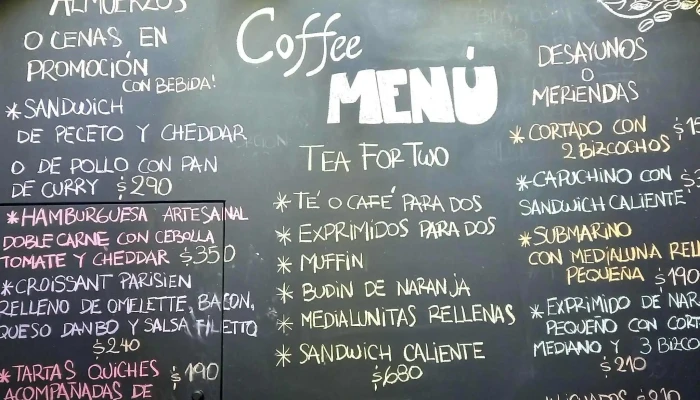 ALMUERZOS
O CENAS EN
PROMOCIÓN
CON BEBIDA!
*SANDWICH
DE PECETO Y CHEDDAR
O DE POLLO CON PAN
DE CURRY $290
*HAMBURGUESA ARTESANAL
DOBLE CARNE CON CEBOLLA
TOMATE Y CHEDDAR $350
*CROISSANT PARISIEN
RELLENO DE OMELETTE, BACON,
QUESO DANBO Y SALSA FILETTO
$240
*TARTAS QUICHES $190
ACOMPAÑADAS DE
Coffee
MENÚ
TEA FOR TWO
*TÉ O CAFÉ PARA DOS
*EXPRIMIDOS PARA DOS
*MUFFIN
*BUDIN DE NARANJA
*MEDIALUNITAS RELLENAS
*SANDWICH CALIENTE
$680
DESAYUNOS
O
MERIENDAS
*CORTADO CON
2 BIZCOCHOS
*CAPUCHINO CON
SANDWICH CALIENTE
*SUBMARINO
CON MEDIALUNA RELL
PEQUEÑA $190
*EXPRIMIDO DE NAR
PEQUEÑO CON CORT
MEDIANO Y 3 BIZCO
$210
$210